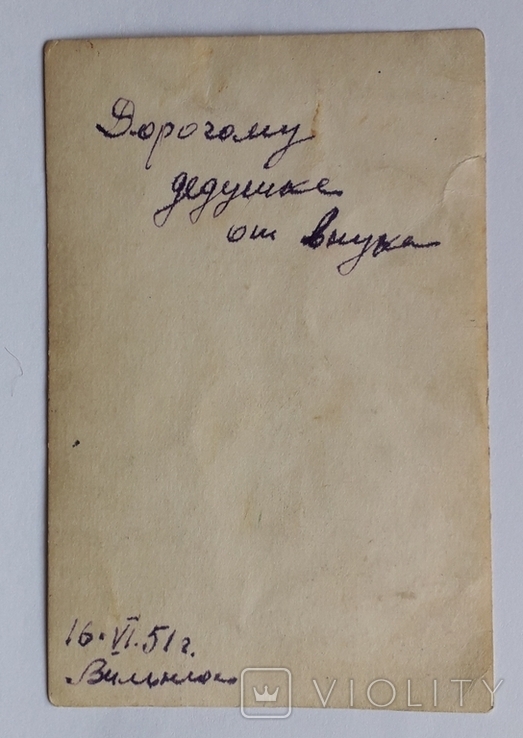 Дорогому
дедушке
от внука
16.VI.51г.
Вильнюс
VIOLITY